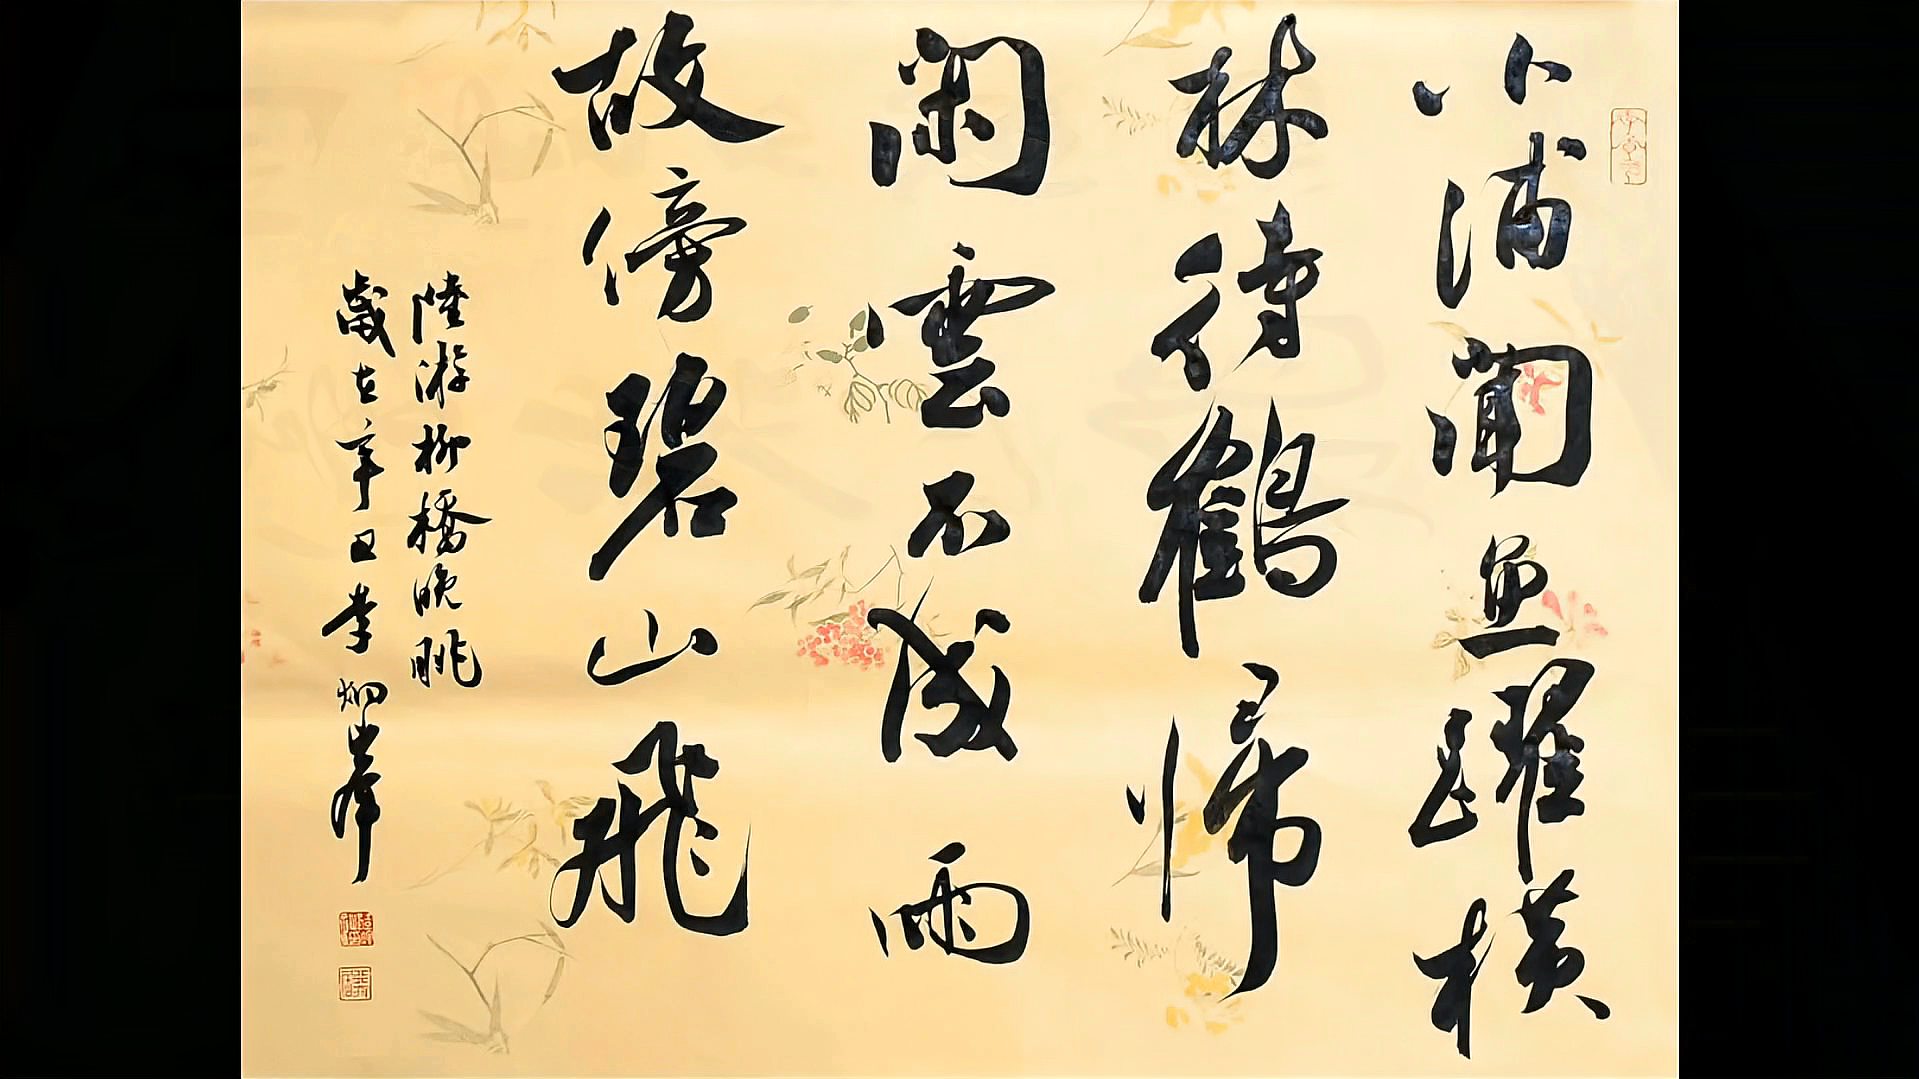 小浦聞魚躍橫
林待鶴歸
閑雲不成雨
故傍碧山飛
陸游柳橋晚眺
歲在辛丑李炯峯